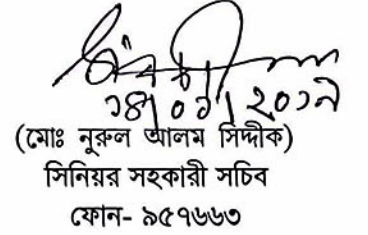 ১৪/০১/২০১৯
(মোঃ নুরুল আলম সিদ্দীক)
সিনিয়র সহকারী সচিব
ফোন- ৯৫৭৬৬৩